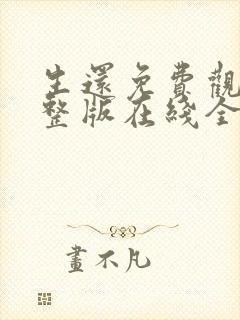 生還免費觀
整版在綫全
畫不凡